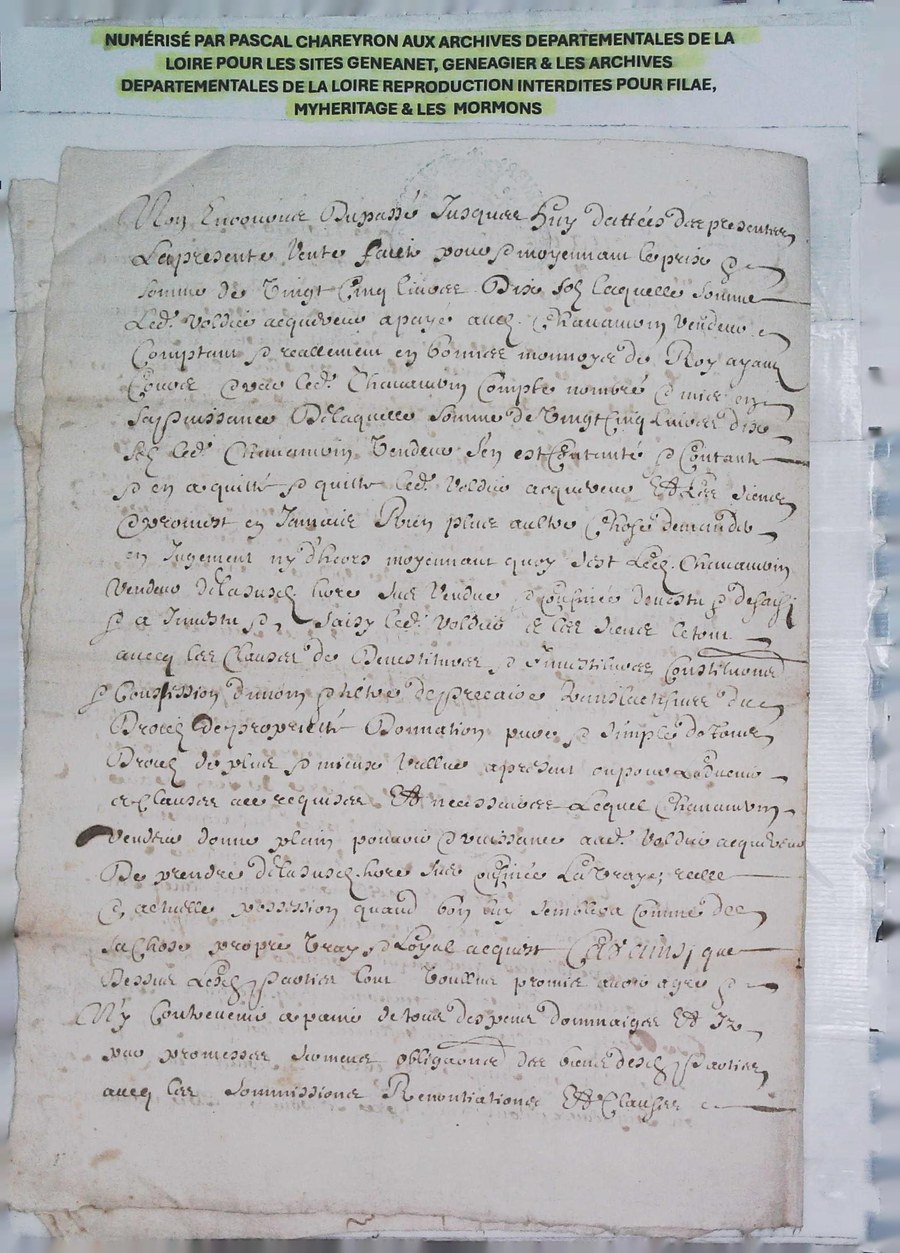 NUMÉRISÉ PAR PASCAL CHAREYRON AUX ARCHIVES DEPARTEMENTALES DE LA
LOIRE POUR LES SITES GENEANET, GENEAGIER & LES ARCHIVES
DEPARTEMENTALES DE LA LOIRE REPRODUCTION INTERDITES POUR FILAE,
MYHERITAGE & LES MORMONS
Non Encourus Du passé Jusques huy dattées des presentes
La presente Vente faicte pour & moyennant le prix &
somme de Vingt Cinq livres Dix solz laquelle somme
Led. Voldic acquéreur a payé aud. Chanamoin Vendeur
Comptant & reallement en bonnes monnoyes de Roy ayant
Cours par led. Chanamoin Compté nombré & mis en
sa puissance De laquelle somme de Vingt Cinq Livres dix
solz led. Chanamoin Vendeur s'en est Contanté &
& en a quitté & quitte led. Voldic acquereur Et Les siens
promest en Jamais Rien plus aultre Chose demander
en Jugement ny d'heors moyennant quoy s'est Led. Chanamoin
Vendeur de la susd. sus Vendue & confinée devestu &
& a Investu & saisy led. Voldic & les siens le tout
aveq les Clauses de Devestitures & Investitures Constitutions
& de precaire du
Droictz de proprietté Donnation pure & simple de tous
Droictz de plus & mieux Vallue a present ou pour
& Clauses ad ce requises Et necessaires Lequel Chanamoin
vendeur donne plain pouvoir puissance aud. Voldic acquereur
De prendre de la susd. sus confinée La Vraye, reelle
& actuelle possession quand bon luy semblera Comme de
sa Chose propre Vray & Loyal acquest Et ainsi que
Dessus Lesd. parties L'ont Voullu promis avoir agré &
N'y Contrevenir a paine de tous despens dommaiges Et
par promesses serment obligations des biens desd. parties
aveq les sommissions Renontiations Et Clauses